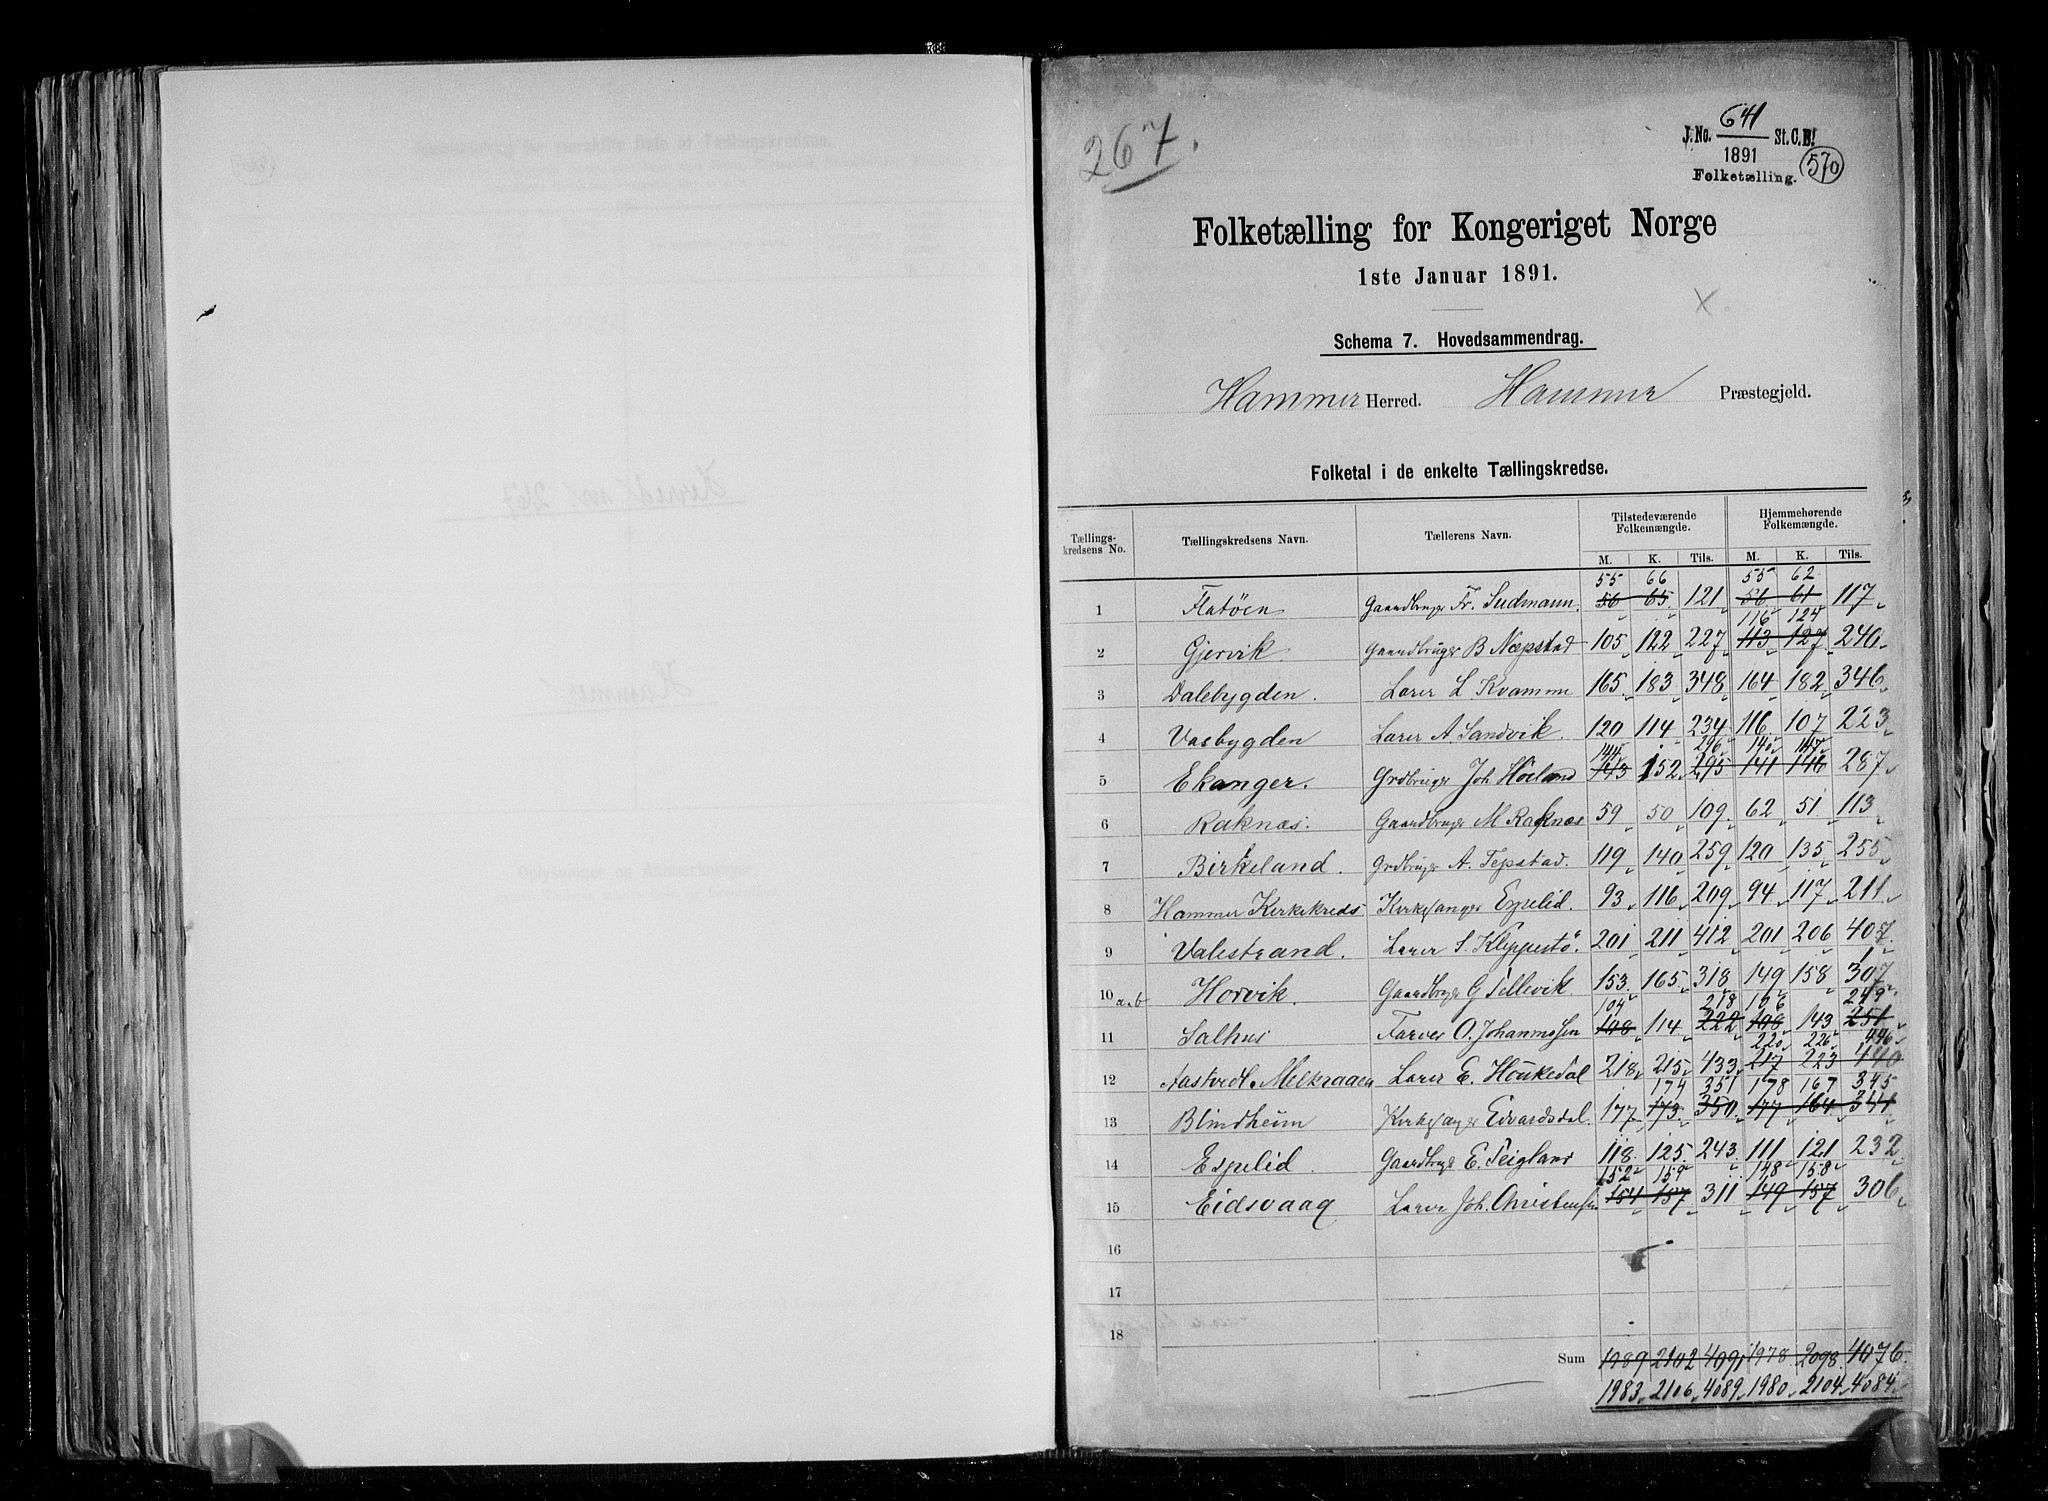 267.
J.No. 641 St.C.B!
1891
Folketælling.
570
Folketælling for Kongeriget Norge
1ste Januar 1891.
Schema 7. Hovedsammendrag.
Hammer Herred. Hammer Præstegjeld.
Folketal i de enkelte Tællingskredse.
Tællings-kredsens No. Tællingskredsens Navn. Tællerens Navn. Tilstedeværende Folkemængde. Hjemmehørende Folkemængde.
M. K. Tils. M. K. Tils.
55 66 55 62
1 Flatöen Gaardbruger Fr. Sudmann. 56 65 121 56 61 117
116 124
2 Gjervik. Gaardbruger B Næpstad 105 122 227 113 127 240
3 Dalebygden. Lærer L Kvamme 165 183 348 164 182 346
4 Vasbygden Lærer A. Sandvik. 120 114 234 116 107 223
144 296 140 147
5 Ekanger. Grdbruger Joh Höeland 143 152 295 141 146 287
6 Raknæs. Gaardbruger M Raknæs 59 50 109 62 51 113
7 Birkeland. Grdbruger A. Tepstad. 119 140 259 120 135 255
8 Hammer Kirkekreds Kirkesanger Espelid. 93 116 209 94 117 211
9 Valestrand. Lærer S. Kleppestö. 201 211 412 201 206 407
10 a.b Horvik. Gaardbruger G Tellevik. 153 165 318 149 158 307
104 218 106 249
11 Salhus Farver O. Johannessen 108 114 222 108 143 251
220 226 446
12 Aastvedt Melkraaen Lærer E. Houkedal 218 215 433 217 223 440
174 351 178 167 345
13 Blindheim Kirkesanger Edvardsdal. 177 173 350 177 164 341
14 Espelid. Gaardbruger E. Teigland 118 125 243 111 121 232
152 159 148 158
15 Eidsvaag Lærer Joh. Christensen 154 157 311 149 157 306
16
17
18
Sum 1989 2102 4091 1978 2098 4076
1983 2106 4089 1980 2104 4084